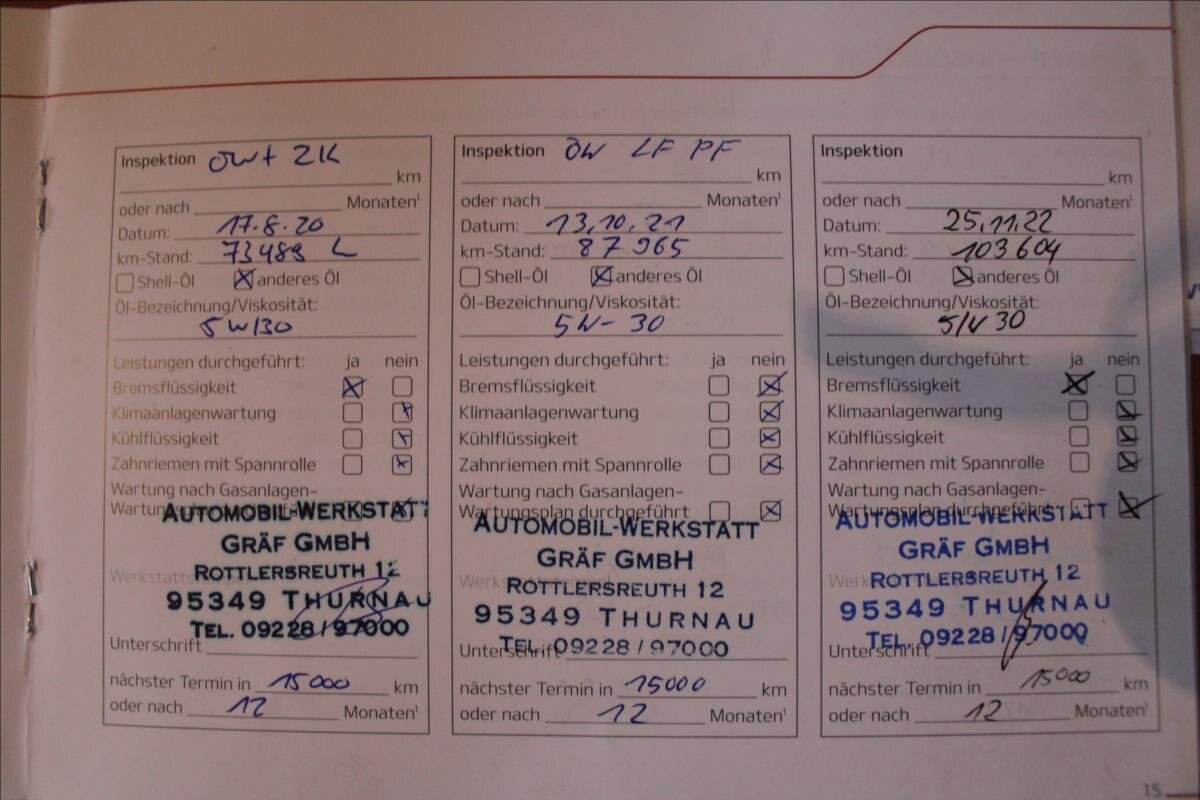 Inspektion ÖW+ ZK
km
oder nach Monaten¹
Datum: 17.8.20
km-Stand: 73489 L
Shell-Öl anderes Öl
Öl-Bezeichnung/Viskosität:
5W/30
Leistungen durchgeführt: ja nein
Bremsflüssigkeit
Klimaanlagenwartung
Kühlflüssigkeit
Zahnriemen mit Spannrolle
Wartung nach Gasanlagen-
AUTOMOBIL-WERKSTATT
GRÄF GMBH
ROTTLERSREUTH 12
95349 THURNAU
TEL. 09228/97000
Unterschrift
nächster Termin in 15000 km
oder nach 12 Monaten¹
Inspektion ÖW LF PF
km
oder nach Monaten¹
Datum: 13,10,21
km-Stand: 87965
Shell-Öl anderes Öl
Öl-Bezeichnung/Viskosität:
5W-30
Leistungen durchgeführt: ja nein
Bremsflüssigkeit
Klimaanlagenwartung
Kühlflüssigkeit
Zahnriemen mit Spannrolle
Wartung nach Gasanlagen-
Wartungsplan durchgeführt
AUTOMOBIL-WERKSTATT
GRÄF GMBH
Werkstattstempel
ROTTLERSREUTH 12
95349 THURNAU
TEL. 09228/97000
Unterschrift
nächster Termin in 15000 km
oder nach 12 Monaten¹
Inspektion
km
oder nach Monaten¹
Datum: 25,11,22
km-Stand: 103604
Shell-Öl anderes Öl
Öl-Bezeichnung/Viskosität:
5W30
Leistungen durchgeführt: ja nein
Bremsflüssigkeit
Klimaanlagenwartung
Kühlflüssigkeit
Zahnriemen mit Spannrolle
Wartung nach Gasanlagen-
Wartungsplan durchgeführt
AUTOMOBIL-WERKSTATT
GRÄF GMBH
ROTTLERSREUTH 12
95349 THURNAU
TEL. 09228/97000
Unterschrift
nächster Termin in 15000 km
oder nach 12 Monaten¹
15